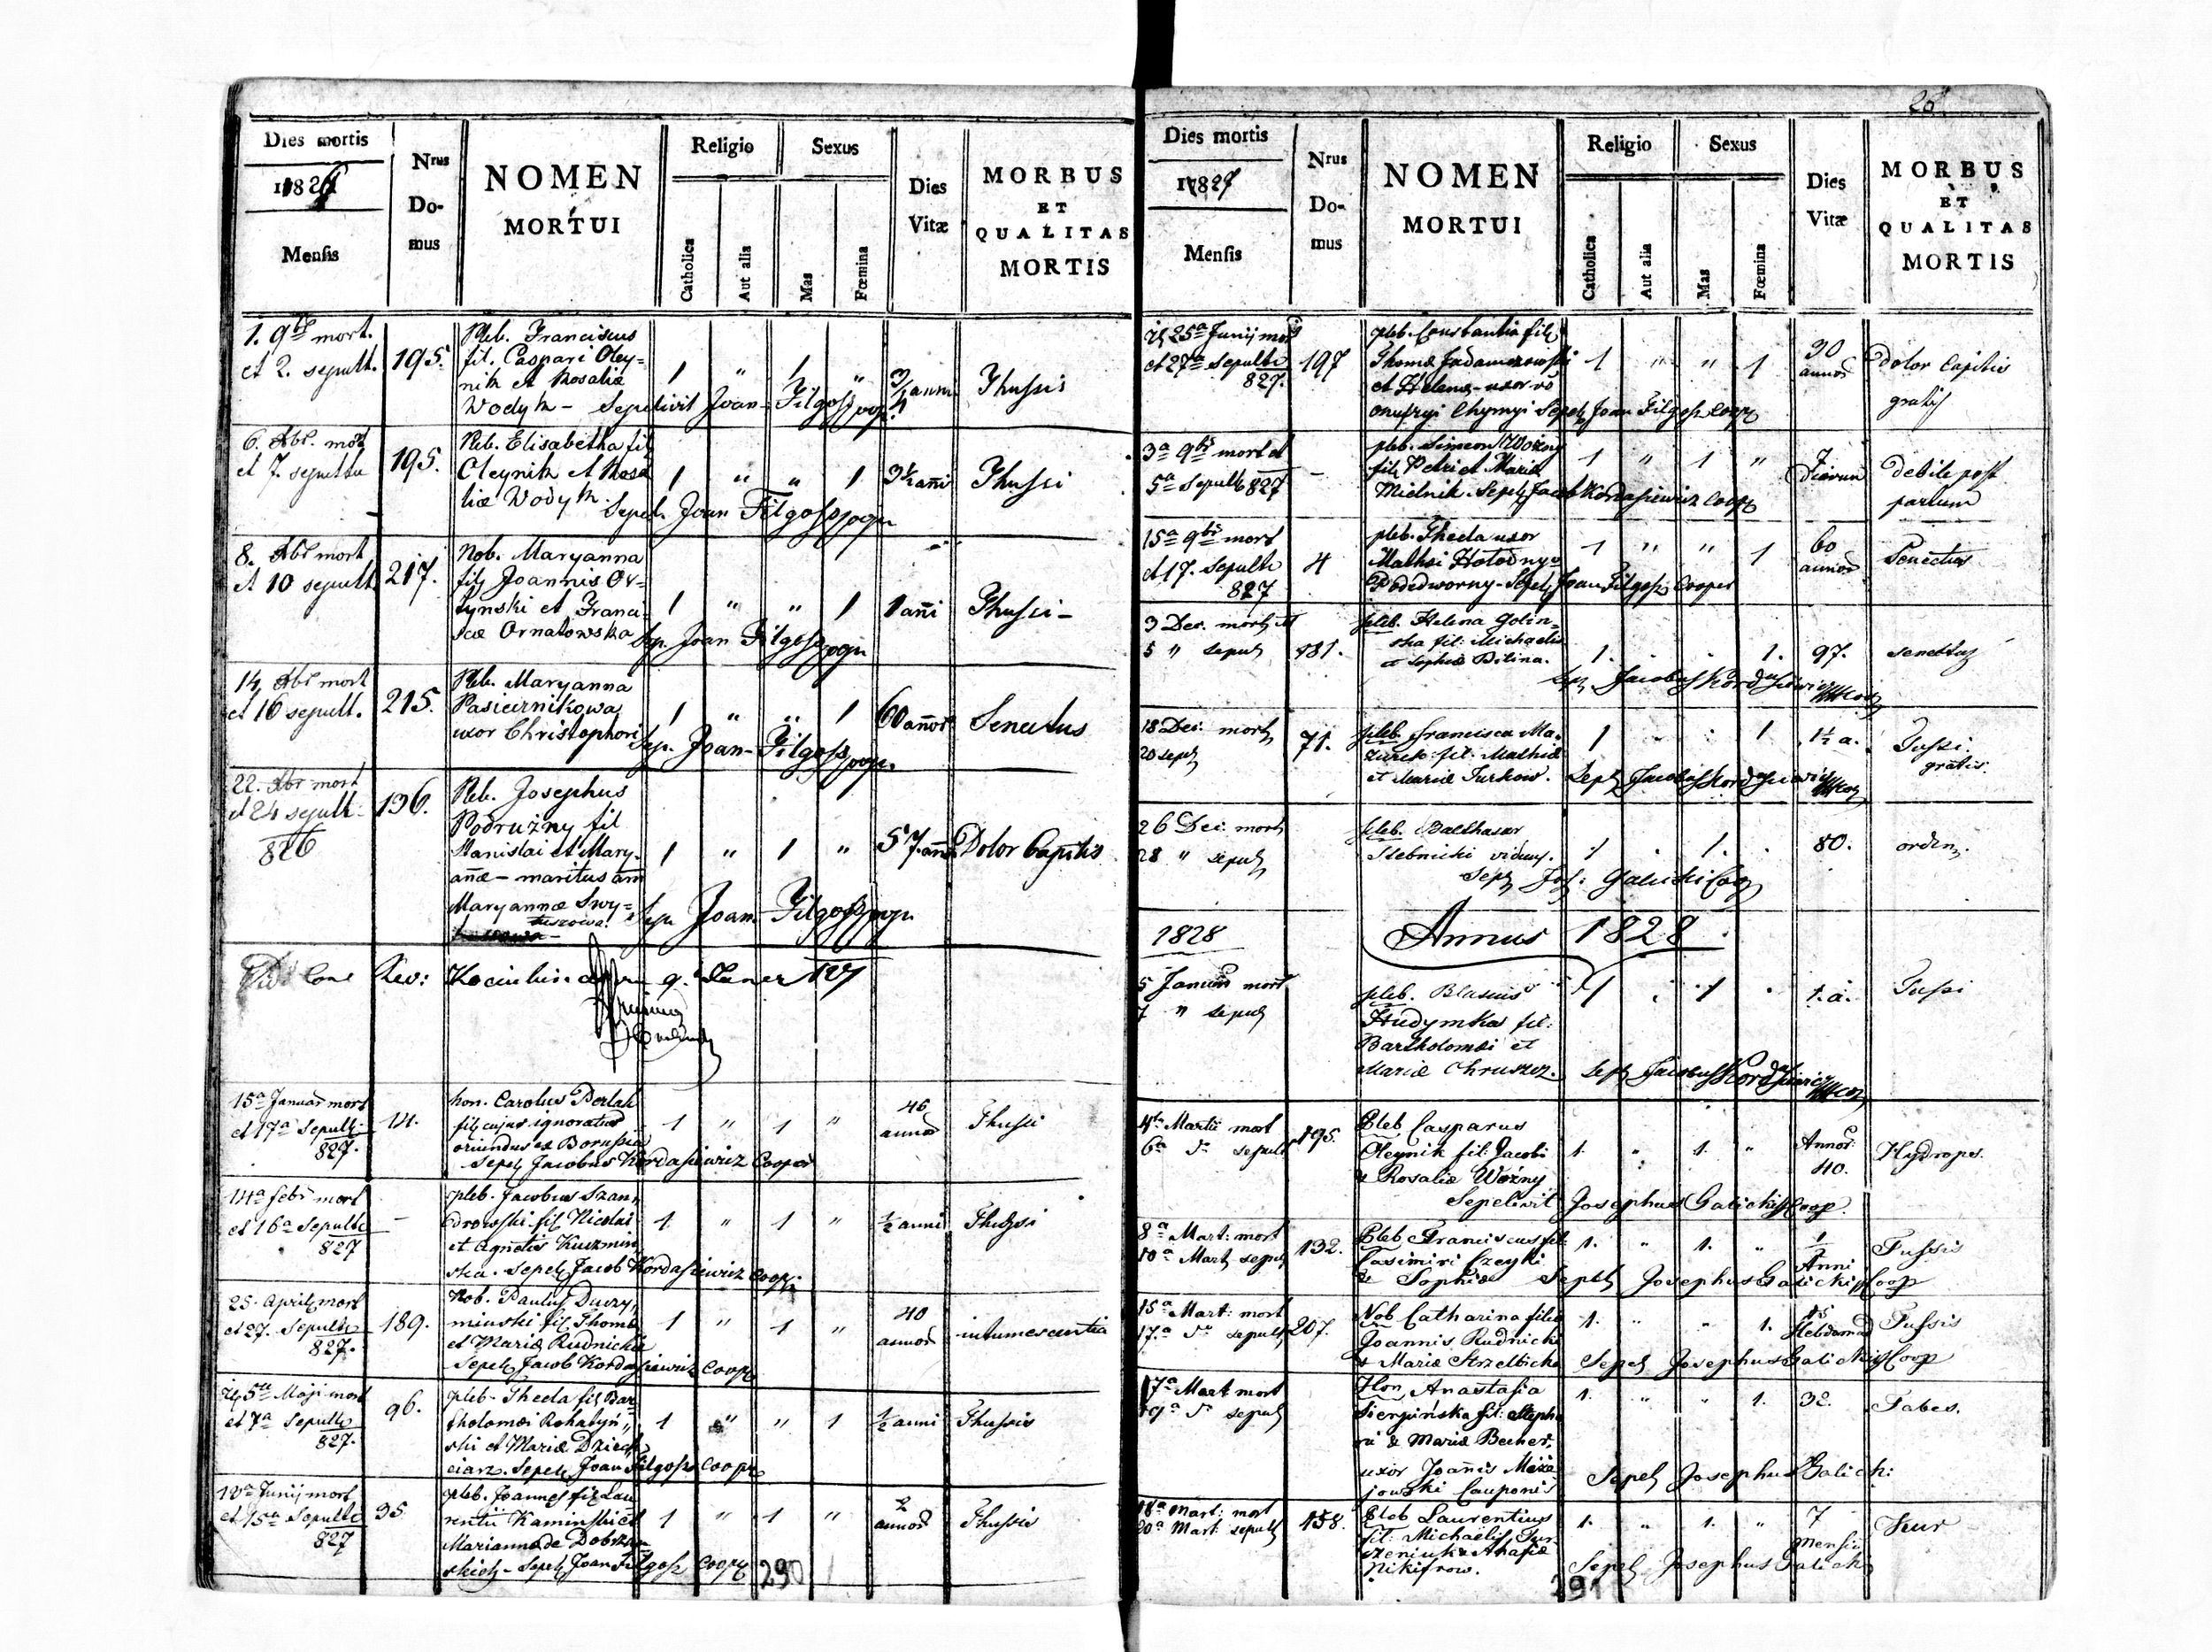 Dies mortis
1826
Mensis
Nrus
Do-
mus
NOMEN
MORTUI
Religio
Catholica
Aut alia
Sexus
Mas
Fœmina
Dies
Vitæ
MORBUS
ET
QUALITAS
MORTIS
1. 9bris mort.
et 2. sepult.
195.
Pleb. Franciscus
fil. Caspari Oley=
nik et Rosaliæ
Wodyk - Sepelivit Joan Filgosz
1 " 1 "
3/4 anni
Thussis
6. Xbr. mort
et 7. sepulta
195.
Pleb. Elisabetha fil
Oleynik et Rosa
liæ Wodyk. Sepel. Joan Filgosz
1 " " 1
3½ anni
Thussi
8. Xbr mort
et 10 sepult
217.
Nob. Maryanna
fil Joannis Or=
tynski et Franci
scæ Ornatowska Sep. Joan Filgosz
1 " " 1
1 anni
Thussi -
14 Xbr mort
et 16 sepult.
215.
Pleb. Maryanna
Pasiecznikowa
uxor Christophori Sep. Joan Filgosz
1 " " 1
60 annor
Senectus
22. Xbr mort
et 24 sepult.
826
196.
Pleb. Josephus
Podrużny fil
Stanislai et Mary-
annæ - maritus
Maryannæ Swy=
Sep. Joan Filgosz
1 " 1 "
57. ann
Dolor Capitis
15a Januar mort
et 17a Sepult.
827.
14.
hon. Carolus Perlak
fil cujus ignoratus
oriundus ex Borussia
Sepel Jacobus Kordasiewicz Cooper
1 " 1 "
46
annor
Thussi
14a febr mort
et 16a Sepult
827
-
pleb. Jacobus Szan
drowski fil Nicolai
et Agnetis Kuzmin
ska. Sepel Jacob Kordasiewicz Coop.
1 " 1 "
½ anni
Thussi
25. April mort
et 27. Sepult
827.
189.
Nob. Paulus Duczy
minski fil Thomæ
et Mariæ Rudnicka
Sepel Jacob Kordasiewicz Coop
1 " 1 "
40
annor
intumescentia
5ta Maji mort
et 7a Sepult
827.
96.
pleb. Thecla fil Bar
tholomæi Rohatyń
ski et Mariæ Dziech
ciarz. Sepel Joan Filgosz Coop
1 " " 1
½ anni
Thussis
Junij mort
et 15a Sepult
827
95
pleb. Joannes fil Lau
rentii Kaminski et
Marianna de Dobrzan
skich - Sepel Joan Filgosz Coop
1 " 1 "
2
annor
Thussis
290
Dies mortis
1827
Mensis
Nrus
Do-
mus
NOMEN
MORTUI
Religio
Catholica
Aut alia
Sexus
Mas
Fœmina
Dies
Vitæ
MORBUS
ET
QUALITAS
MORTIS
25a Junij mort
et 27a Sepult
827.
197
pleb. Constantia fil
Thomæ Jadamczowski
et Helenæ - uxor
Onufryi Chymyi Sepel Joan Filgosz Coop
1 " " 1
30
annor
dolor Capitis
gratis
3a 9bris mort et
5a Sepult 827
-
pleb. Simeon Woźny
fil Petri et Mariæ
Mielnik. Sepel Jacob Kordasiewicz Coop
1 " 1 "
7
dierum
debile post
partum
15a 9bris mort
et 17. Sepult
827
4
pleb. Thecla uxor
Mathæi Hołodny
Podedworny - Sepel Joan Filgosz Cooper
1 " " 1
60
annor
Senectus
3 Dec. mort et
5 " sepul
181.
pleb. Helena Golin=
ska fil: Michaelis
et Sophiæ Bilina.
Sep Jacobus Kordasiewicz
1. . . 1.
97.
senectus
18 Dec. mort
20 sepul
71.
pleb. Francisca Ma=
zurek fil: Mathiæ
et Mariæ Turkow. Sepel Jacobus Kordasiewicz
1 . . 1
1½ a.
Tussi.
gratis.
26 Dec. mort
28 " sepul
pleb. Balthasar
Stebnicki viduus.
Sepel Jos: Galicki Coop
1 . 1. .
80.
ordin.
1828
Annus 1828
5 Januar mort
7 " sepul
pleb. Blasius
Hudymka fil:
Bartholomæi et
Mariæ Chruszcz. Sepel Jacobus Kordasiewicz
1 . 1 .
1. a.
Tussi
4ta Martii mort
6ta do sepult
195.
Pleb Casparus
Oleynik fil: Jacobi
& Rosaliæ Woźny
Sepelivit Josephus Galicki Coop.
1. " 1. "
Annor.
40.
Hydrops.
8a Mart: mort
10a Mart sepul
132.
Pleb Franciscus fil
Casimiri Czeyki
& Sophiæ Sepel Josephus Galicki Coop
1. " 1. "
Anni
Tussis
15a Mart: mort
17a do sepult
207.
Nob Catharina filia
Joannis Rudnicki
& Mariæ Strzelbicka Sepel Josephus Galicki Coop
1. " " 1.
15
Hebdomad
Tussis
17a Mart mort
19a do sepul
Hon. Anastasia
Sierpińska fil: Stepha
ni & Mariæ Becher,
uxor Joannis
jowski Cauponis Sepel Josephus Galicki:
1. " " 1.
32.
Tabes.
18a Mart: mort
20a Mart: sepult
158.
Pleb Laurentius
fil: Michaelis Tur
czeniuk & Anasiæ
Nikifrow. Sepel Josephus Galicki
1. " 1. "
7
Mensiu
291